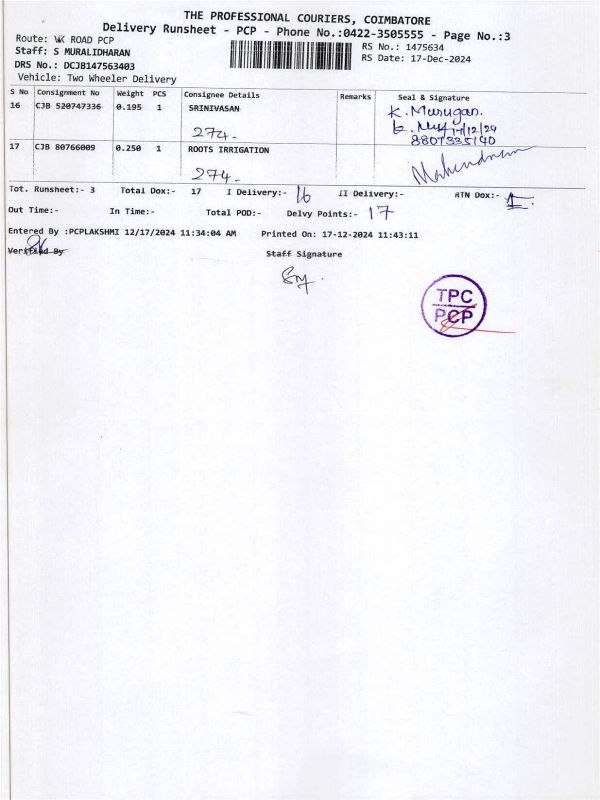 THE PROFESSIONAL COURIERS, COIMBATORE
Delivery Runsheet - PCP - Phone No.:0422-3505555 - Page No.:3
Route: VK ROAD PCP
RS No.: 1475634
Staff: S MURALIDHARAN
RS Date: 17-Dec-2024
DRS No.: DCJB147563403
Vehicle: Two Wheeler Delivery
S No Consignment No Weight PCS Consignee Details Remarks Seal & Signature
16 CJB 520747336 0.195 1 SRINIVASAN K. Murugan.
274- 17/12/24
17 CJB 80766009 0.250 1 ROOTS IRRIGATION
274-
Tot. Runsheet:- 3 Total Dox:- 17 I Delivery:- 16 II Delivery:- RTN Dox:- 1
Out Time:- In Time:- Total POD:- Delvy Points:- 17
Entered By :PCPLAKSHMI 12/17/2024 11:34:04 AM Printed On: 17-12-2024 11:43:11
Verified By Staff Signature
TPC
PCP